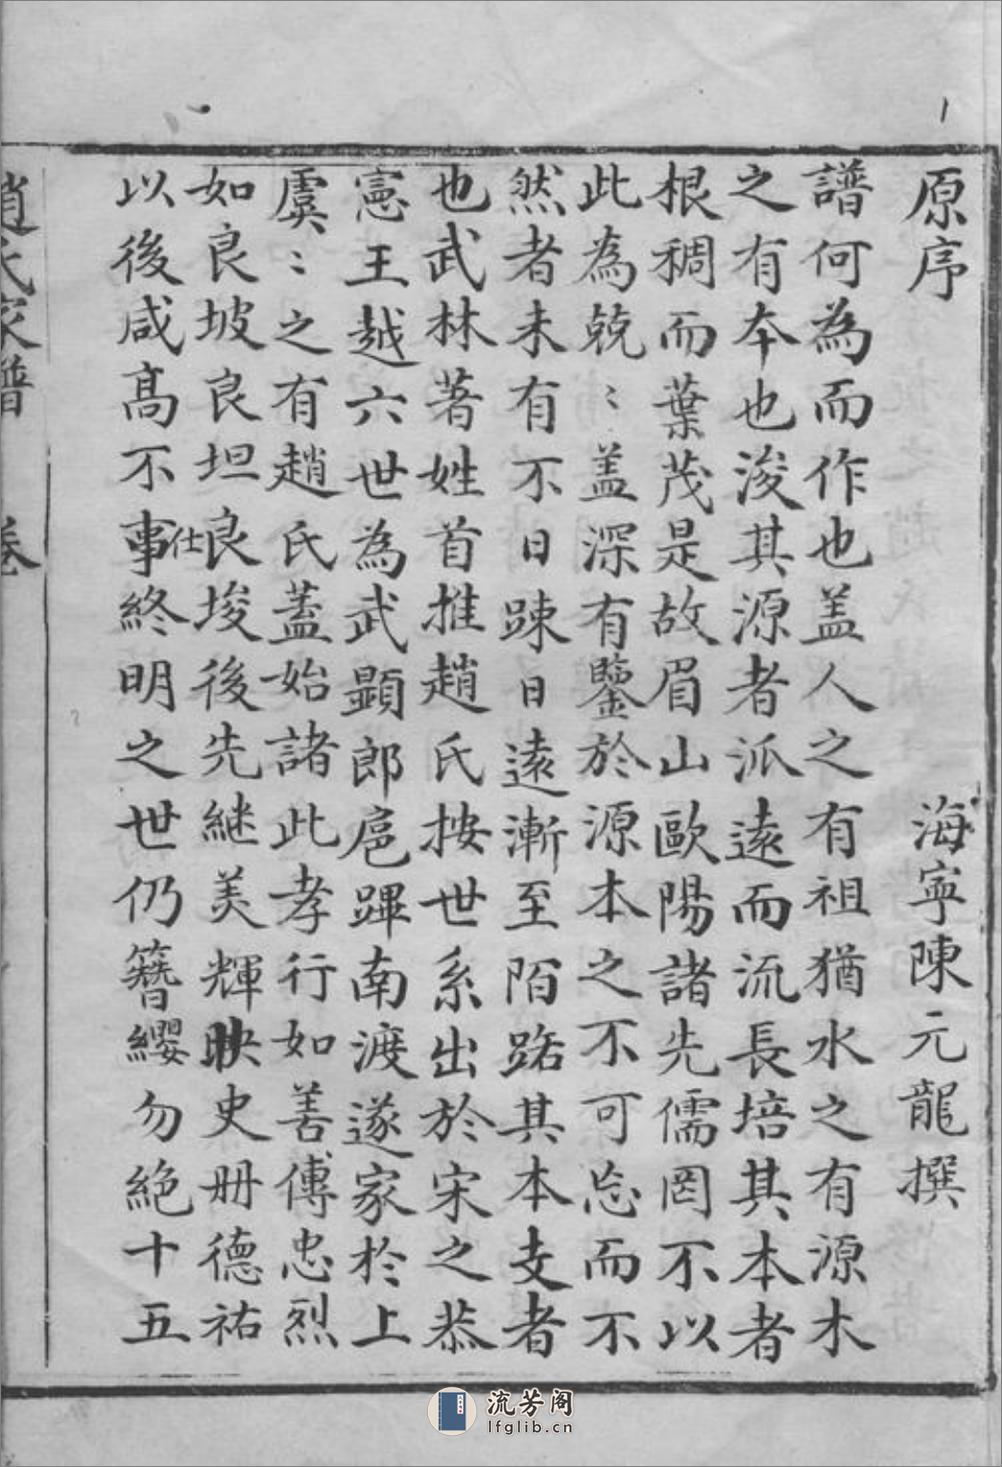 原序 海寧陳元龍撰
譜何為而作也盖人之有祖猶水之有源木
之有本也浚其源者派遠而流長培其本者
根稠而葉茂是故眉山歐陽諸先儒罔不以
此為兢〻盖深有鑒於源本之不可忘而不
然者未有不日踈日遠漸至陌路其本支者
也武林著姓首推趙氏按世系出於宋之恭
憲王越六世為武顯郎扈蹕南渡遂家於上
虞〻之有趙氏蓋始諸此孝行如善傅忠烈
如良坡良坦良埈後先継美輝映史册德祐
以後咸髙不事仕終明之世仍簪纓勿絶十五
趙氏家譜 卷
1
流芳阁
lfglib.cn